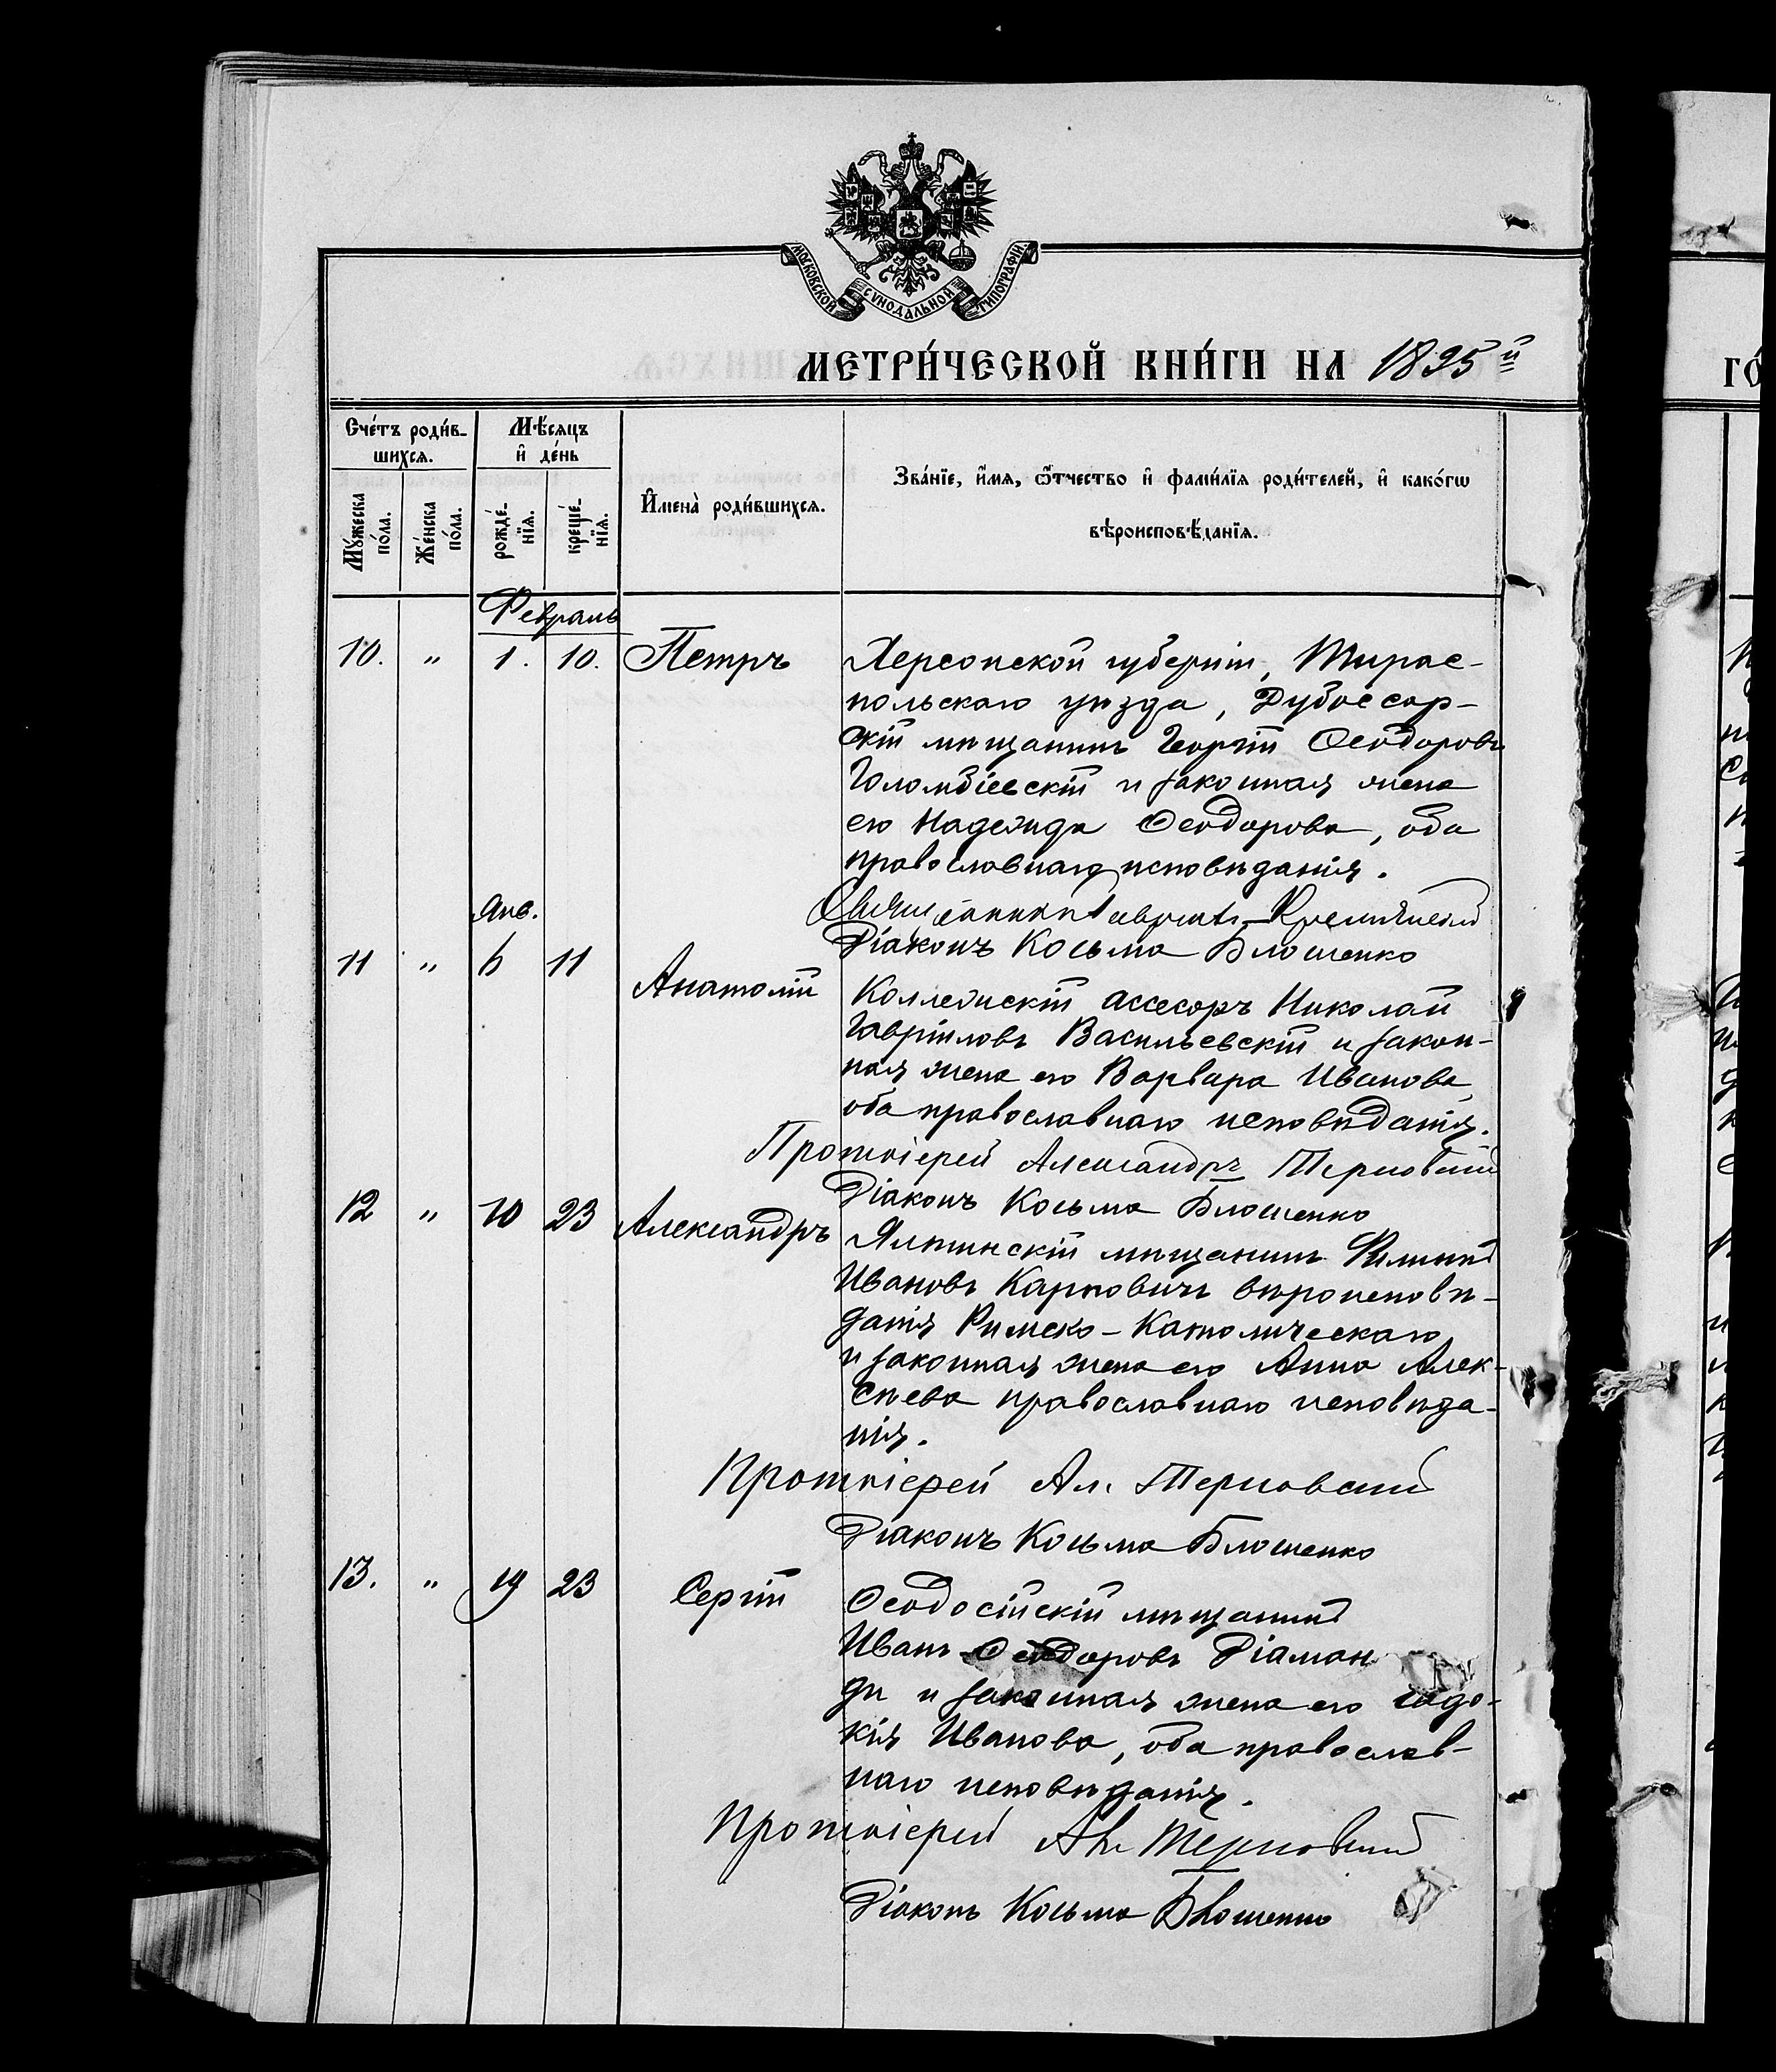 МОСКОВСКОЙ СѴНОДАЛЬНОЙ ТИПОГРАФІИ
МЕТРИ́ЧЕСКОЙ КНИ́ГИ НА 1895й
Сче́тъ роди́в-
шихсѧ.
Мѣ́сяцъ
и҆ де́нь
И҆мена̀ роди́вшихсѧ.
Зва́нїе, и҆́мѧ, ѻ҆́тчество и҆ фами́лїѧ роди́телей, и҆ како́гѡ
вѣроисповѣ́данїѧ.
Мꙋ́жеска
по́ла.
Же́нска
по́ла.
рожде́-
нїѧ.
креще́-
нїѧ.
Февраль
10. " 1. 10. Петръ Херсонской губерніи, Тирас-
польскаго уѣзда, Дубоссар-
скій мѣщанинъ Георгій Ѳеодоровъ
Голомбіевскій и законная жена
его Надежда Ѳеодорова, оба
православнаго исповѣданія.
Янв.
Діаконъ Косьма Блошенко
11 " 6 11 Анатолій Коллежскій ассесоръ Николай
Гавріиловъ Васильевскій и закон-
ная жена его Варвара Иванова,
оба православнаго исповѣданія.
Протоіерей Александръ Терновскій
Діаконъ Косьма Блошенко
12 " 10 23 Александръ Ялтинскій мѣщанинъ Филиппъ
Ивановъ Карповичъ вѣроисповѣ-
данія Римско-Католическаго
и законная жена его Анна Алек-
сѣева православнаго исповѣда-
нія.
Протоіерей Ал. Терновскій
Діаконъ Косьма Блошенко
13. " 19 23 Сергій Ѳеодосійскій мѣщанинъ
Иванъ Ѳеодоровъ Діаман
ди и законная жена его Евдо-
кія Иванова, оба православ-
наго исповѣданія.
Протоіерей Ал. Терновскій
Діаконъ Косьма Блошенко
ГО́